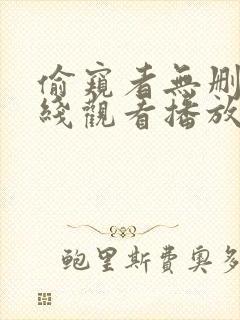 偷窺者無刪
綫觀看播放
鲍里斯費奧多